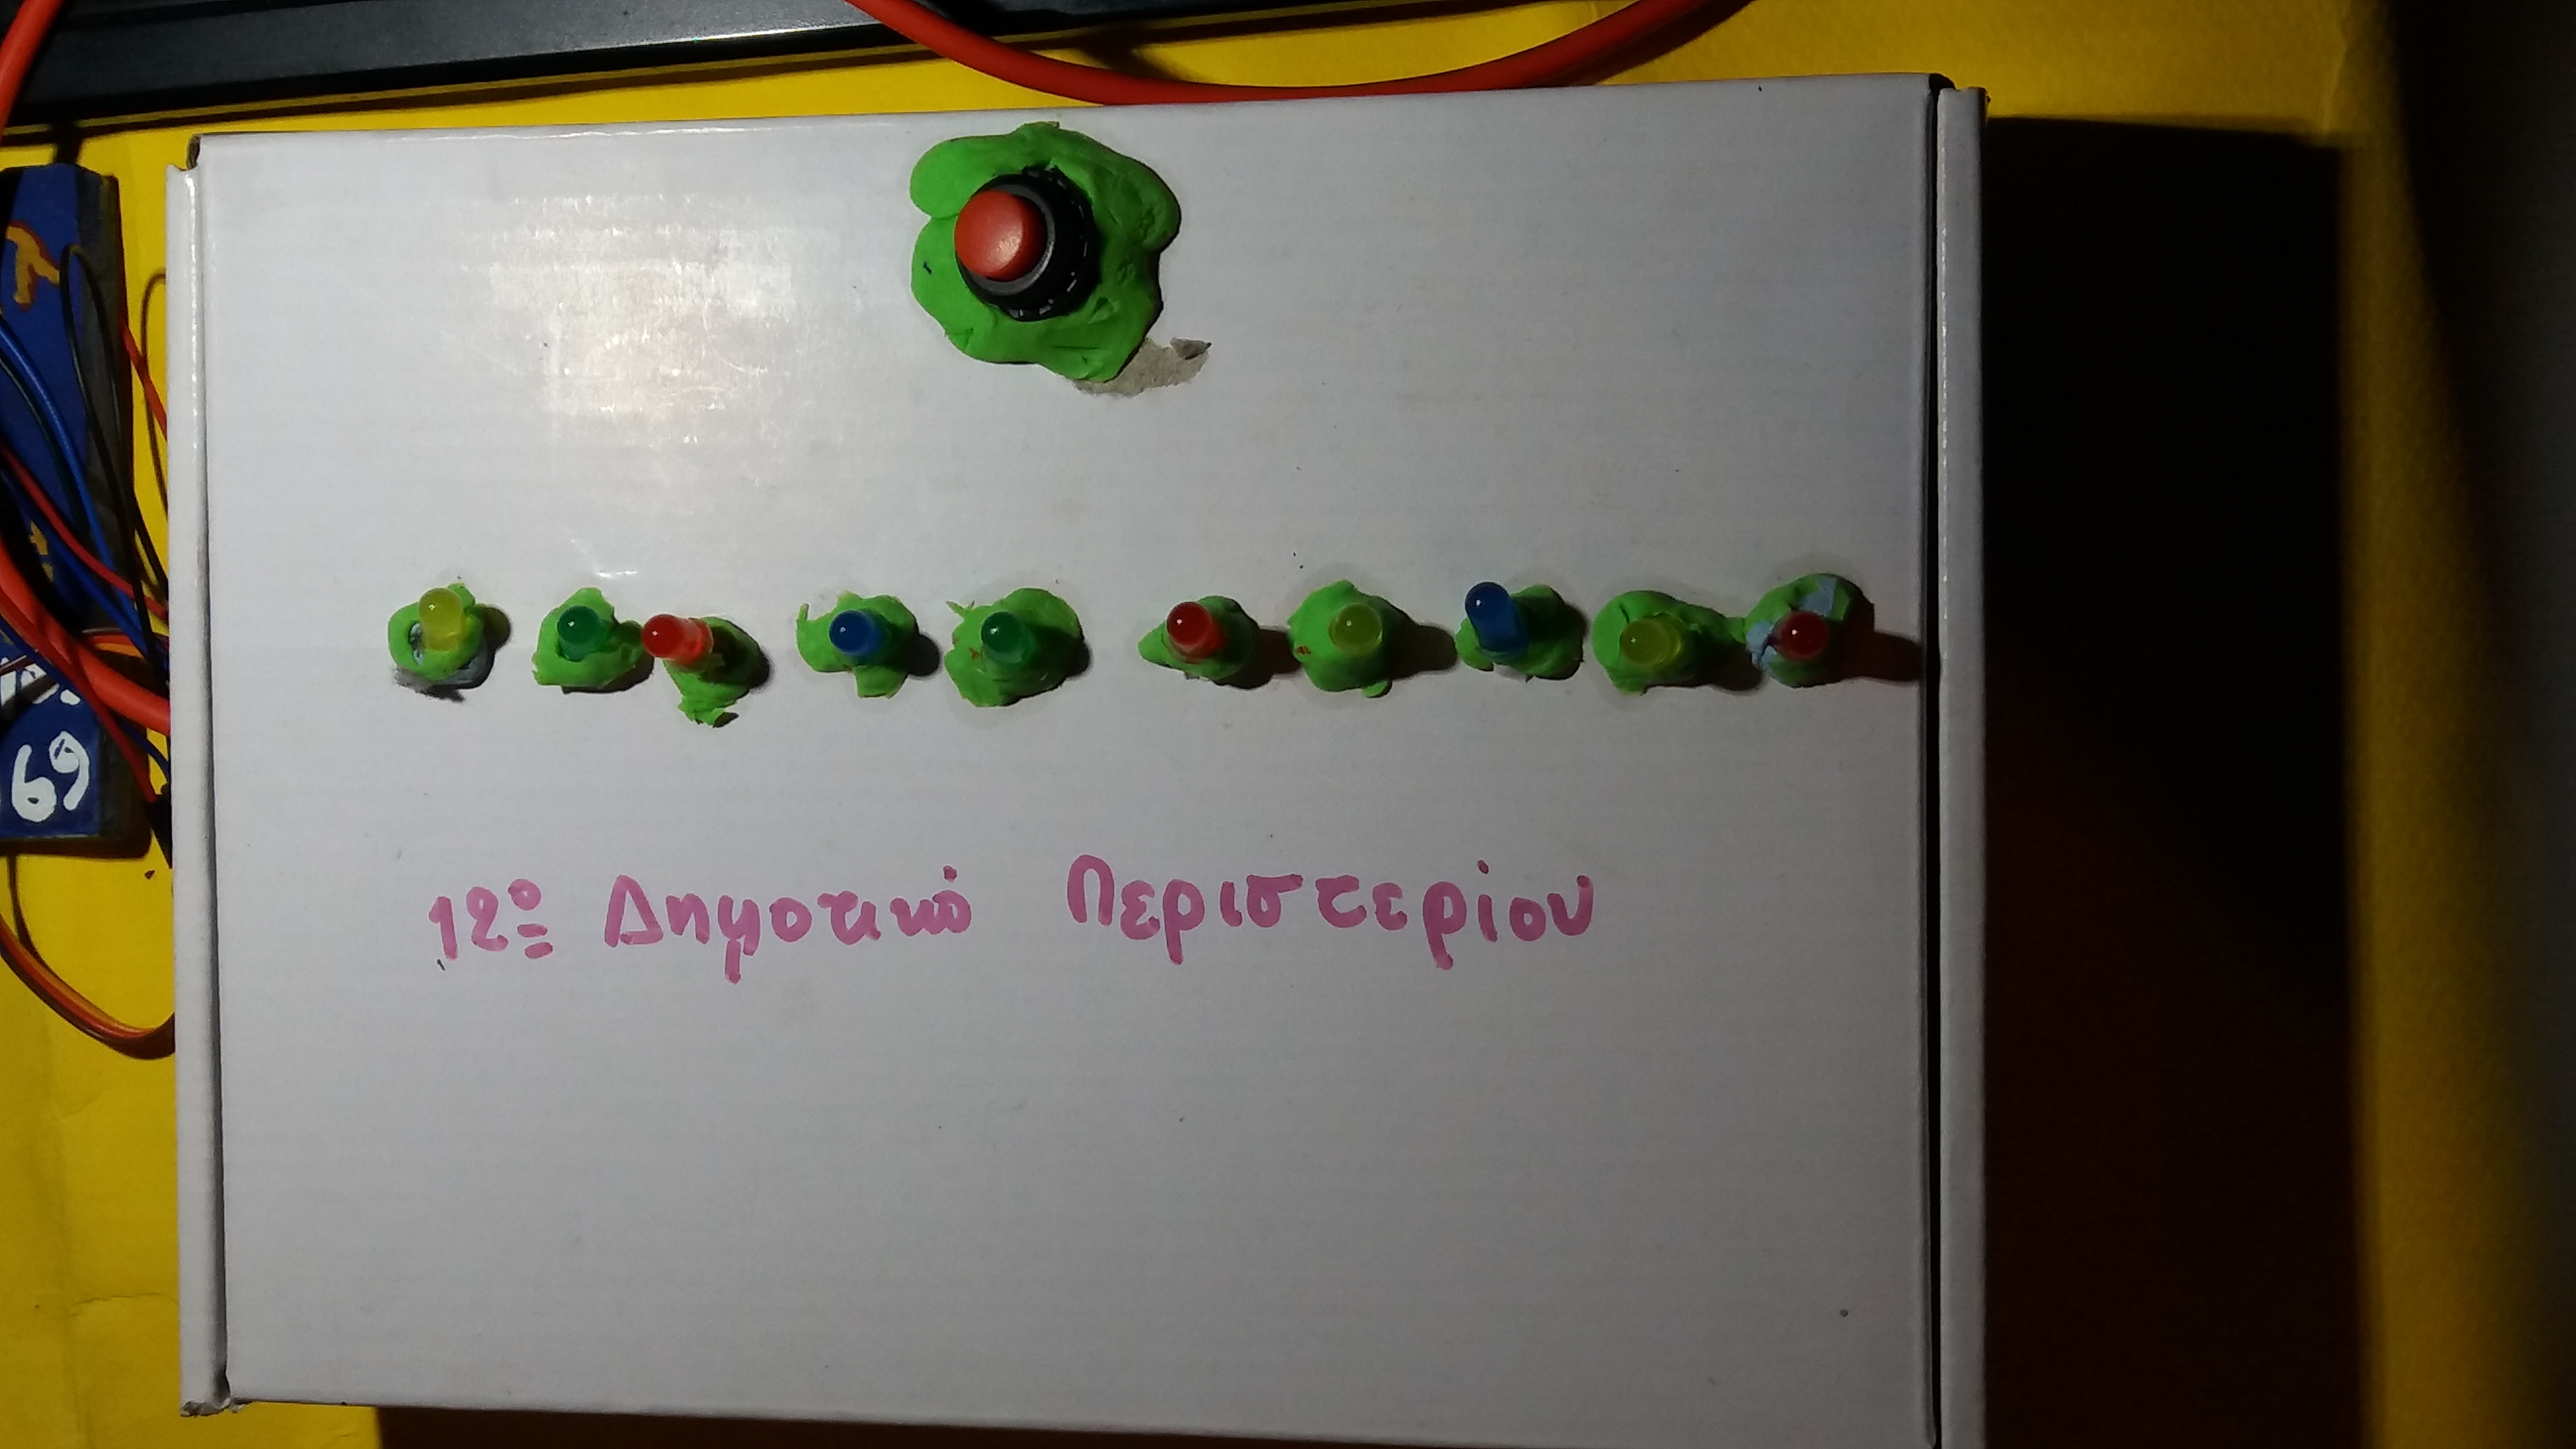 12º Δημοτικό Περιστερίου
69